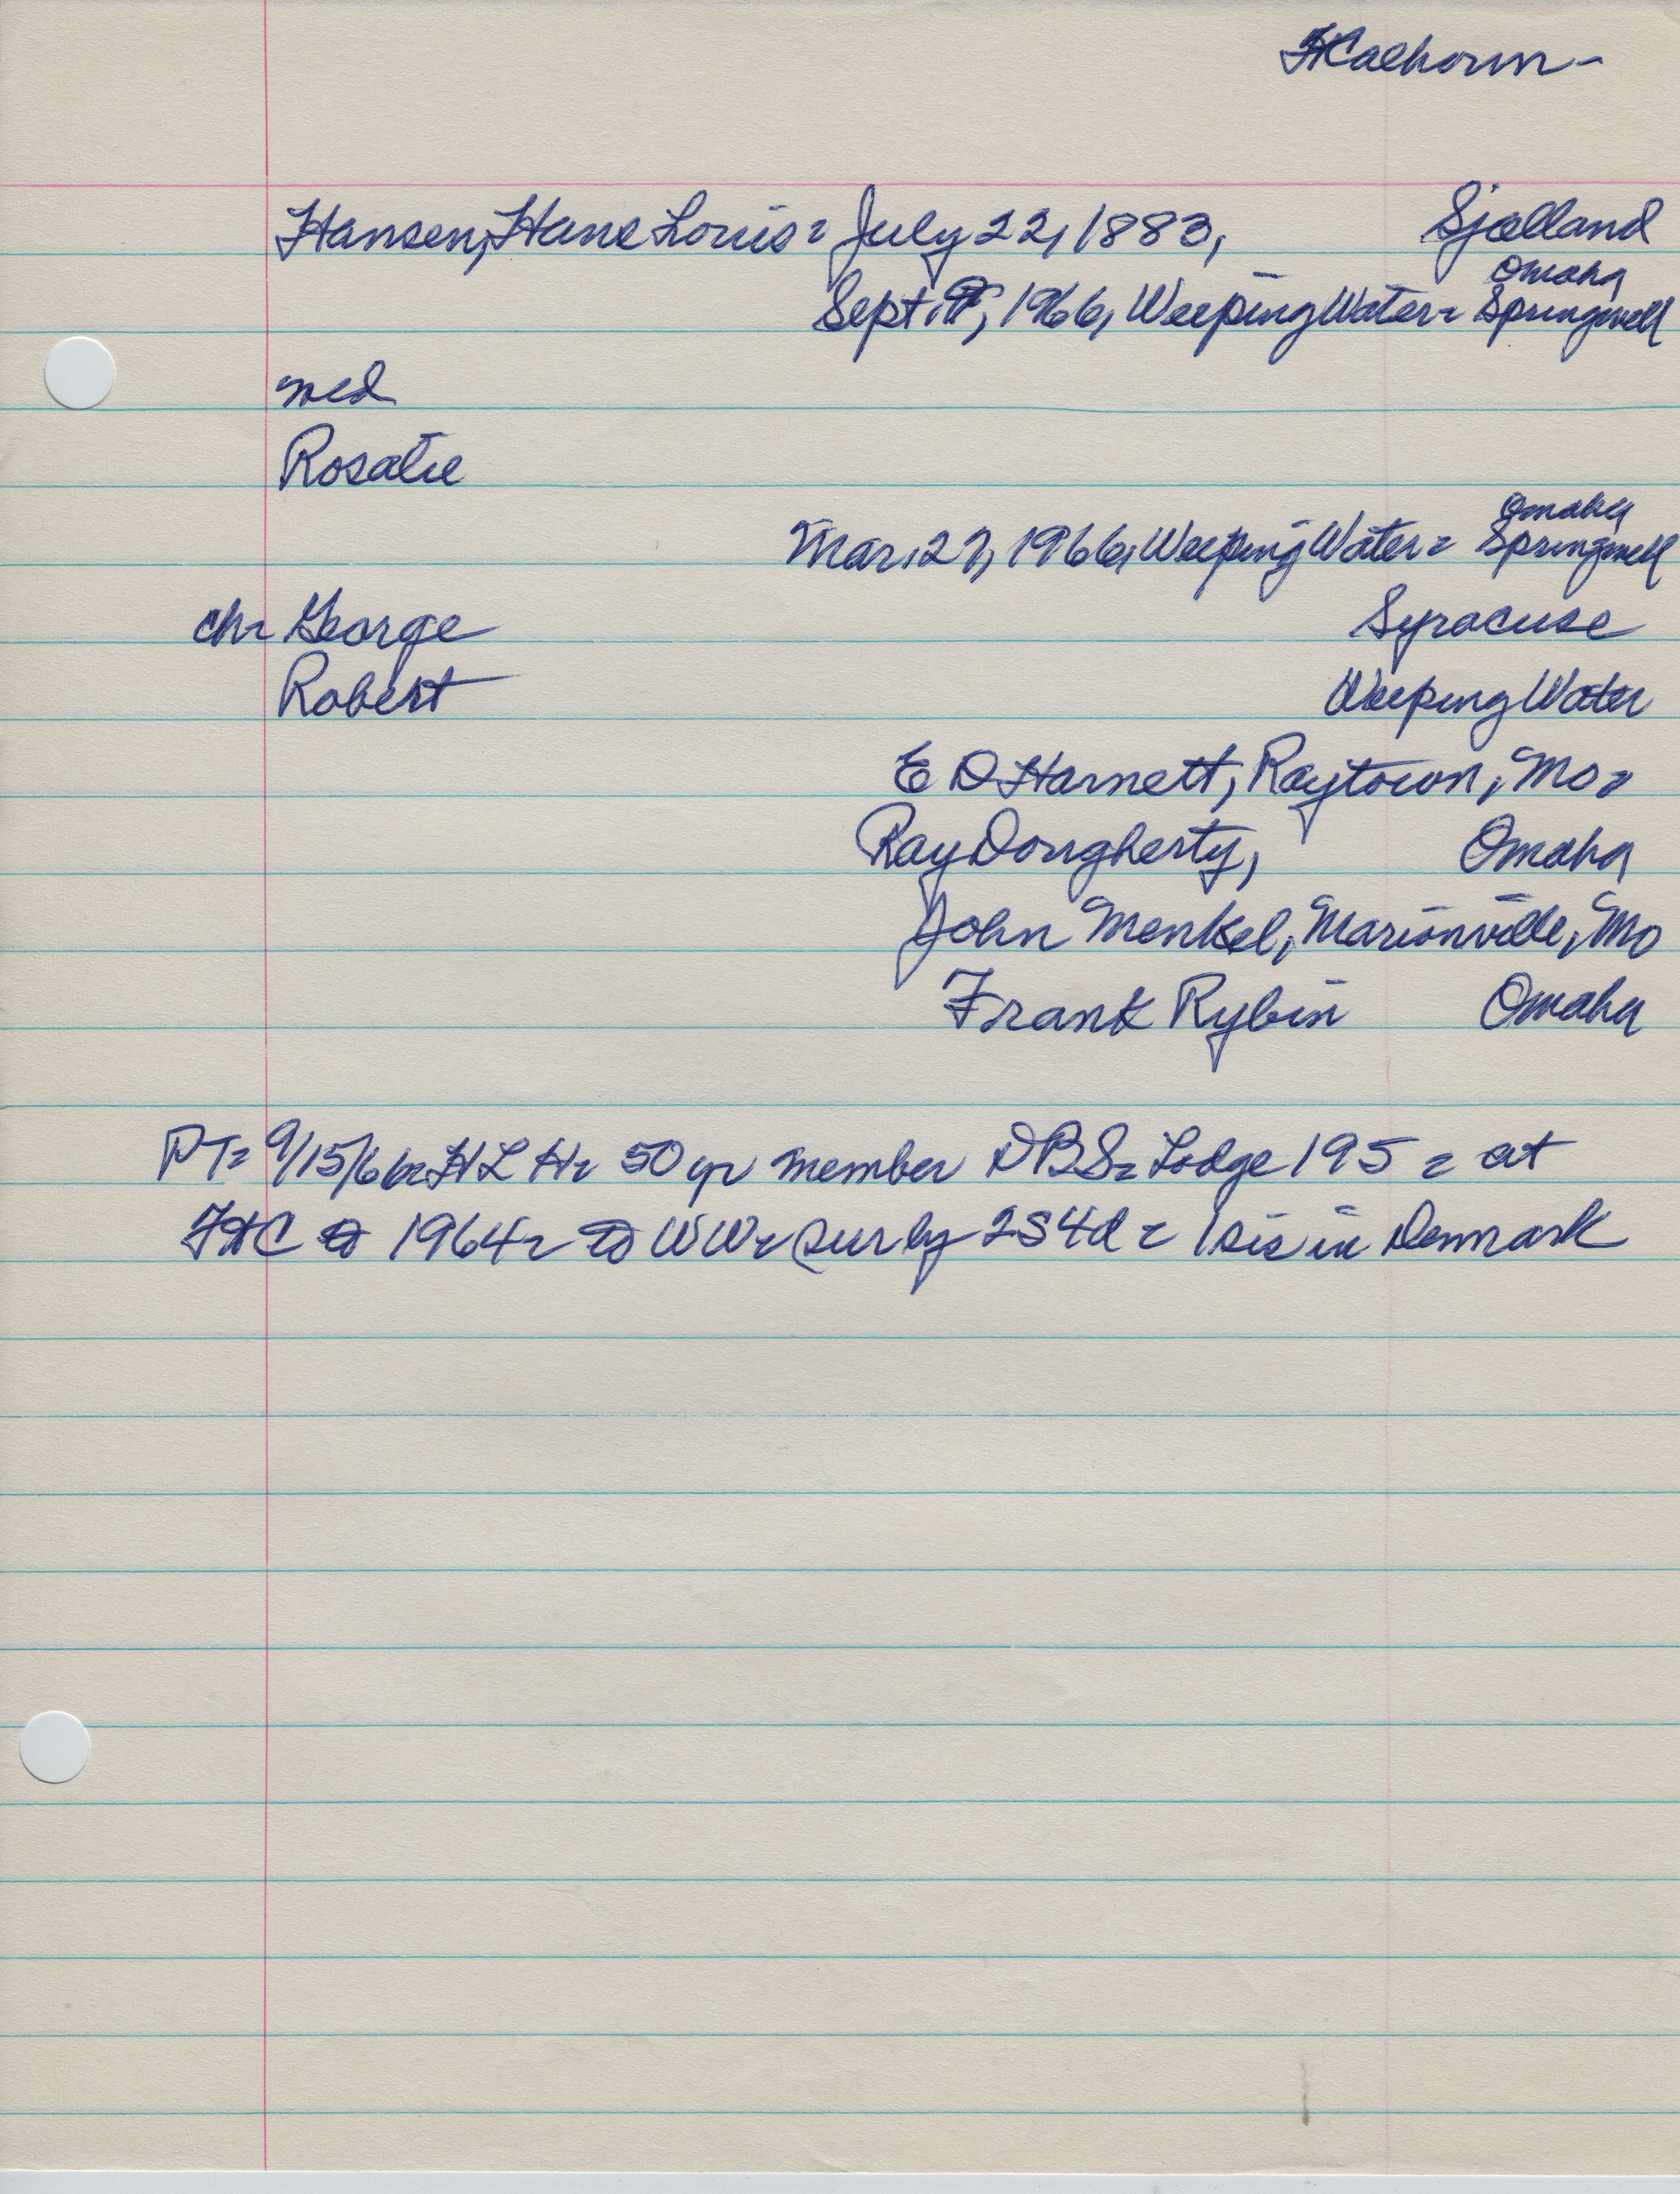 Ft Calhoun -
Hansen, Hans Louis - July 22, 1883, Sjælland
Omaha
Sept. , 1966, Weeping Water - Springwell
med
Rosalie
Omaha
Mar. 27, 1966, Weeping Water - Springwell
ch - George Syracuse
Robert Weeping Water
E D Harnett, Raytown, Mo -
Ray Dougherty, Omaha
John Menkel, Marionville, Mo
Frank Rybin Omaha
PT - 9/15/66 - H L H - 50 yr member DBS - Lodge 195 - at
Ft C to 1964 - to WW - sur by 2S 4d - 1 sis in Denmark